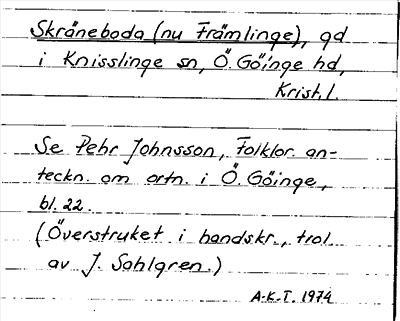 Skråneboda (nu Främlinge), gd
i Knisslinge sn, Ö. Göinge hd,
Krist. l.
Se Pehr Johnsson, Folklor. an-
teckn. om ortn. i Ö. Göinge,
bl. 22.
(Överstruket i handskr., trol.
av J. Sahlgren.)
A.K.T. 1974